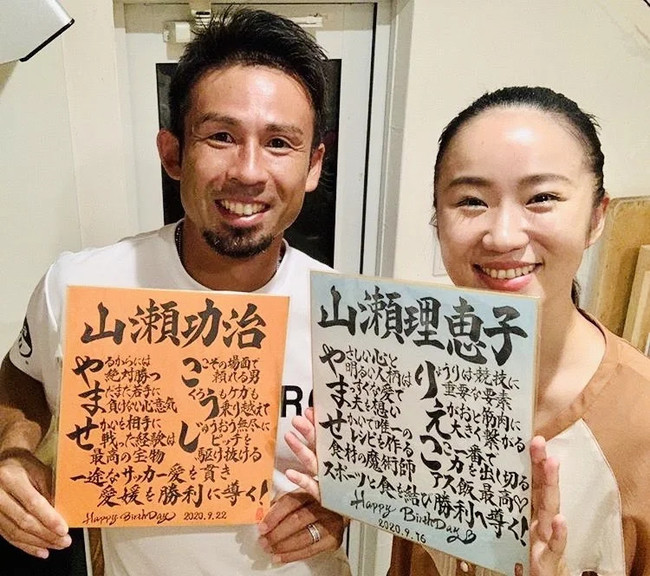 山瀬功治
やるからには
絶対勝つ
まだまだ若手に
負けない心意気
せかいを相手に
戦った経験は
最高の宝物
ここその場面で
頼れる男
くろうもケガも
乗り越えて
じゅうおう無尽に
ピッチを
駆け抜ける
一途なサッカー愛を貫き
愛媛を勝利に導く!
Happy BirthDay
2020.9.22
山瀬理恵子
やさしい心と
明るい人柄は
まっすぐな愛で
夫を想い
せかいで唯一の
レシピを作る
食材の魔術師
りょうりは競技に
重要な要素
えがおと筋肉に
大きく繋がる
ここ一番で
力を出し切る
アス飯最高♡
スポーツと食を結び勝利へ導く!
Happy BirthDay
2020.9.16